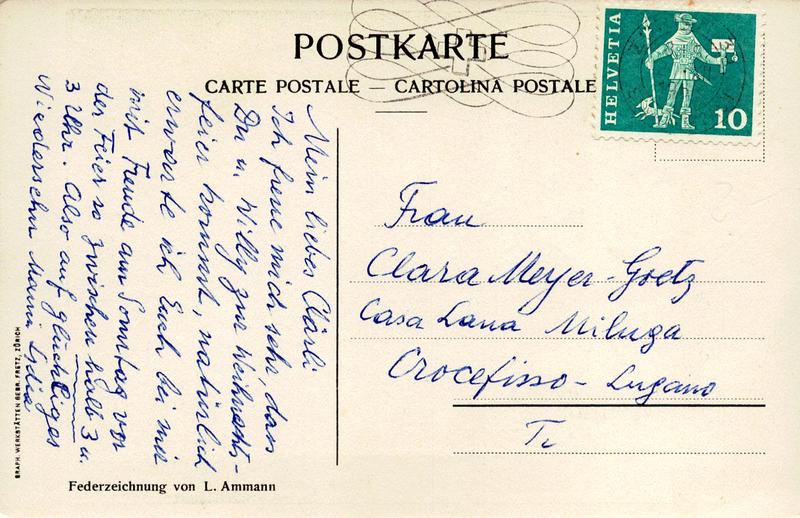 POSTKARTE
CARTE POSTALE — CARTOLINA POSTALE
HELVETIA
10
Mein liebes Clärli
Ich freue mich sehr, dass
Du u. Willy zur Weihnachts-
feier kommst, natürlich
erwarte ich Euch bei mir
mit Freude am Sonntag vor
der Feier so zwischen halb 3 u.
3 Uhr. Also auf glückliges
Niedersehn Mamma Lydia
Frau
Clara Meyer-Goetz
Casa Lana Miluga
Crocefisso - Lugano
Ti
GRAPH. WERKSTÄTTEN GEBR. FRETZ, ZÜRICH
Federzeichnung von L. Ammann